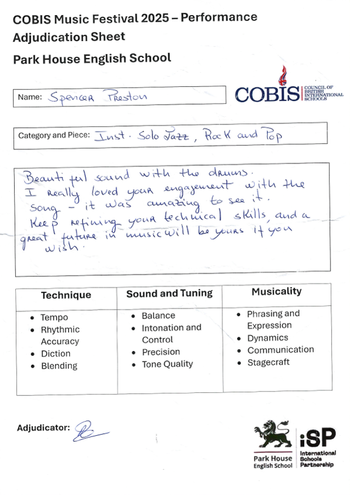 COBIS Music Festival 2025 – Performance
Adjudication Sheet
Park House English School
Name: Spencer Preston
COBIS COUNCIL OF BRITISH INTERNATIONAL SCHOOLS
Category and Piece: Inst. Solo Jazz, Rock and Pop
Beautiful sound with the drums.
I really loved your engagement with the
song – it was amazing to see it.
Keep refining your technical skills, and a
great future in music will be yours if you
wish.
Technique
• Tempo
• Rhythmic
Accuracy
• Diction
• Blending
Sound and Tuning
• Balance
• Intonation and
Control
• Precision
• Tone Quality
Musicality
• Phrasing and
Expression
• Dynamics
• Communication
• Stagecraft
Adjudicator:
Park House
English School
iSP
International
Schools
Partnership